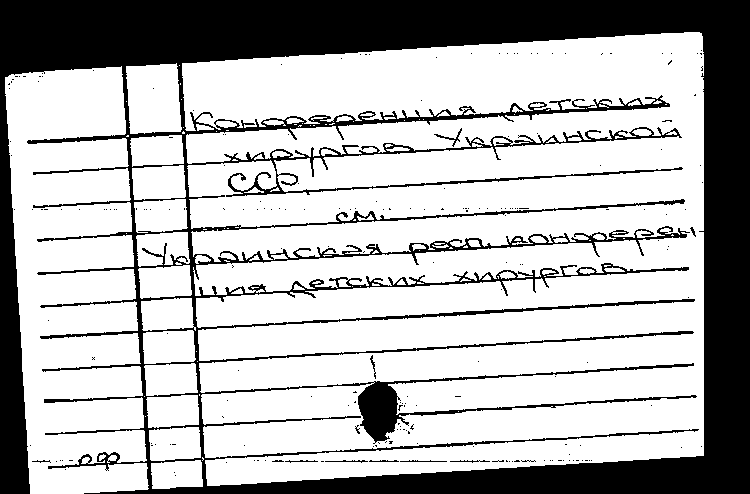 Конференция детских
хирургов Украинской
ССР.
см.
Украинская респ. конферен-
ция детских хирургов.
оф